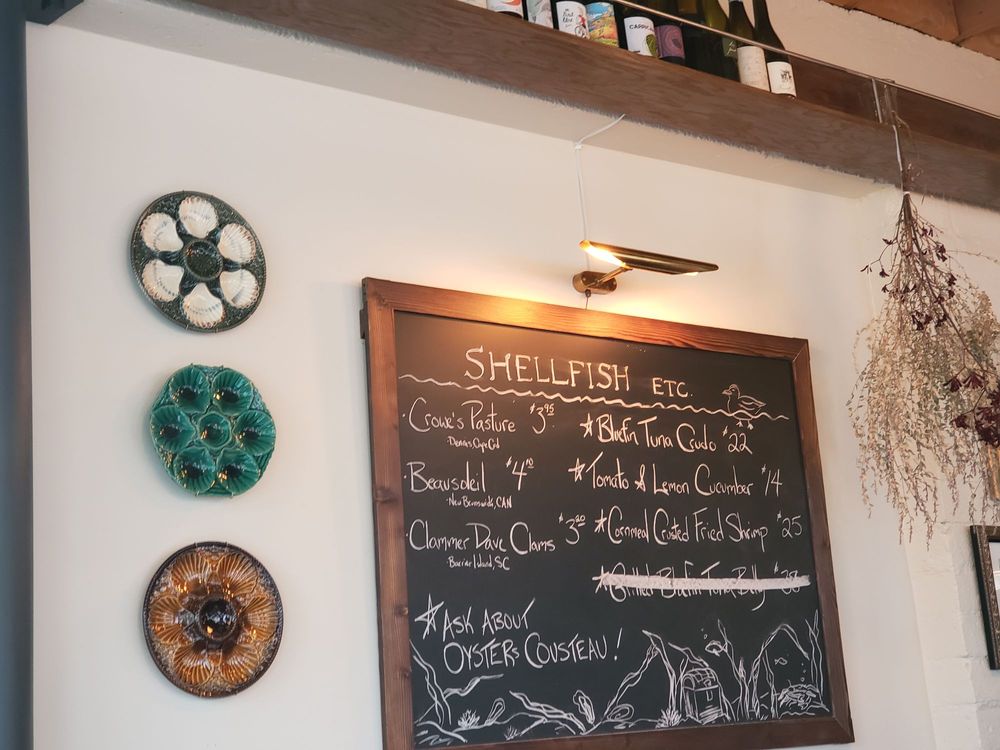 SHELLFISH ETC.
· Crowe's Pasture $3.95
· Dennis, Cape Cod
· Beausoleil $4.10
· New Brunswick, CAN
· Clammer Dave Clams $3.20
· Barrier Island, SC
☆ Bluefin Tuna Crudo $22
☆ Tomato & Lemon Cucumber $14
☆ Cornmeal Crusted Fried Shrimp $25
☆ Grilled Bluefin Tuna Belly
☆ ASK ABOUT
OYSTERS COUSTEAU!